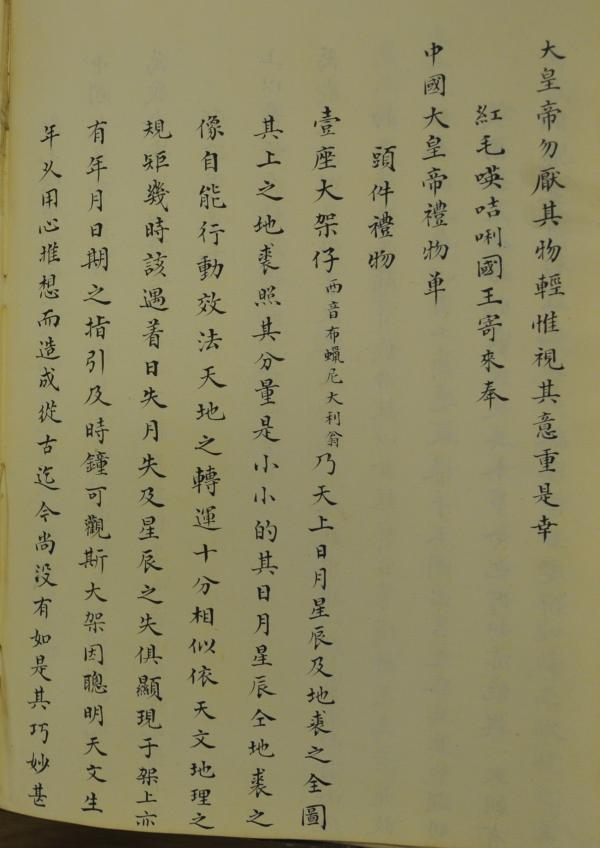 大皇帝勿厭其物輕惟視其意重是幸
紅毛㖷咭唎國王寄來奉
中國大皇帝禮物单
頭件禮物
壹座大架仔西音布蠟尼大利翁乃天上日月星辰及地裘之全圖
其上之地裘照其分量是小小的其日月星辰仝地裘之
像自能行動效法天地之轉運十分相似依天文地理之
規矩幾時該遇着日失月失及星辰之失俱顯現于架上亦
有年月日期之指引及時鐘可觀斯大架因聰明天文生
年久用心推想而造成從古迄今尚没有如是其巧妙甚